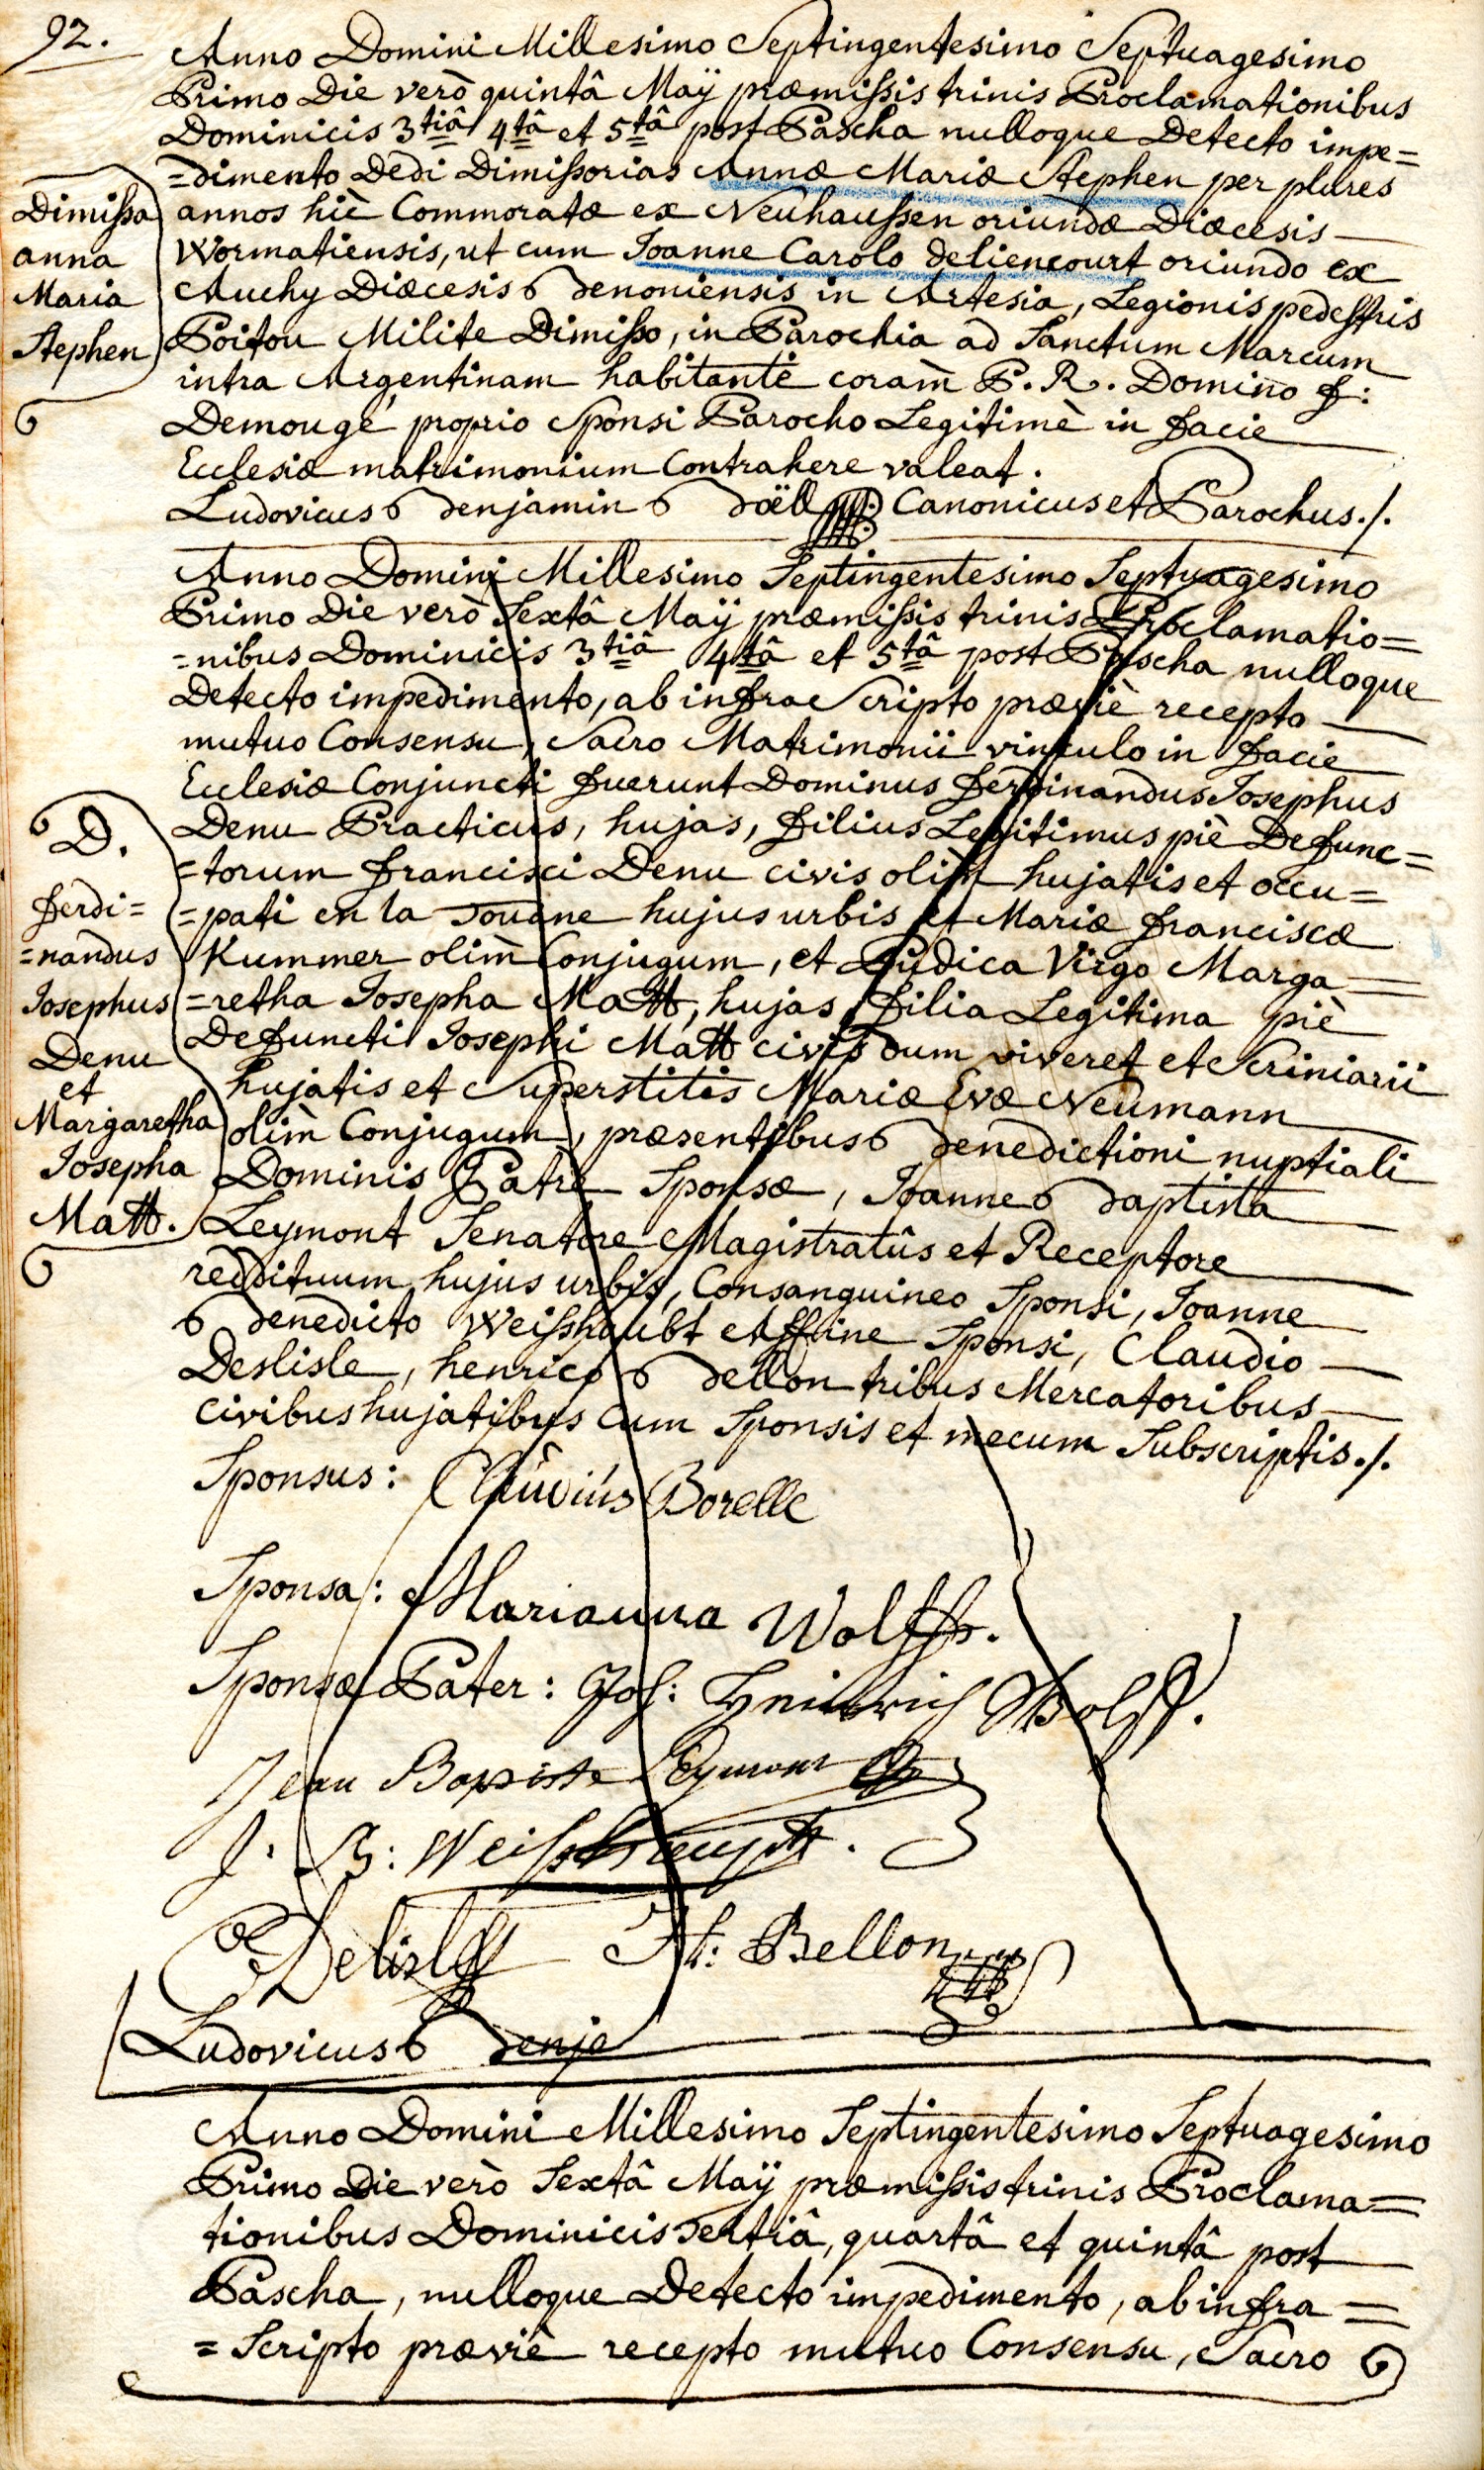 92.
Anno Domini Millesimo Septingentesimo Septuagesimo
Primo Die verò quintâ Maÿ præmissis trinis Proclamationibus
Dominicis 3tiâ 4tâ et 5tâ post Pascha nulloque Detecto impe=
=dimento Dedi Dimissorias Annæ Mariæ Stephen per plures
annos hìc Commoratæ ex Neühaussen oriundæ Diœcesis
Wormatiensis, ut cum Joanne Carolo deliencourt oriundo ex
Auchy Diœcesis Benoniensis in Artesia, Legionis pedestris
Poitou Milite Dimisso, in Parochia ad Sanctum Marcum
intra Argentinam habitante coràm P. R. Domino F:
Demougé proprio Sponsi Parocho Legitimè in facie
Ecclesiæ matrimonium Contrahere valeat.
Ludovicus BenjaminBöell Canonicus et Parochus./.
Dimissa
anna
Maria
Stephen
Anno Domini Millesimo Septingentesimo Septuagesimo
Primo Die verò Sextâ Maÿ præmissis trinis Proclamatio=
=nibus Dominicis 3tiâ 4tâ et 5tâ post Pascha nulloque
Detecto impedimento, ab infra Scripto præviè recepto
mutuo Consensu, Sacro Matrimonii vinculo in facie
Ecclesiæ Conjuncti fuerunt Dominus ferdinandus Josephus
Denu Practicus, hujas, filius Legitimus piè Defunc=
=torum francisci Denu civis olìm hujatis et occu=
=pati en la Douane hujus urbis et Mariæ franciscæ
Kummer olìm Conjugum, et Pudica Virgo Marga=
=retha Josepha Matt, hujas, filia Legitima piè
Defuncti Josephi Matt civis dum viveret et Scriniarii
hujatis et Superstitis Mariæ Evæ Neümann
olìm Conjugum, præsentibus Benedictioni nuptiali
Dominis Patre Sponsæ, Joanne Baptista
Leymont Senatore Magistratûs et Receptore
reddituum hujus urbis, Consanguineo Sponsi, Joanne
Benedicto Weisshaubt Affine Sponsi, Claudio
Deslisle, henrico Bellon tribus Mercatoribus
civibus hujatibus Cum Sponsis et mecum Subscriptis./.
D.
ferdi=
=nandus
Josephus
Denu
et
Margaretha
Josepha
Matt.
Sponsus: Claudius Borelle
Sponsa: Marianna Wolff.
Sponsæ Pater: Joh: Heinrich Wolff.
Jean Baptiste Leymont
J. B: Weisshaupt.
C Delisle H: Bellon
Ludovicus Benja
Anno Domini Millesimo Septingentesimo Septuagesimo
Primo Die verò Sextâ Maÿ præmissis trinis Proclama=
tionibus Dominicis Tertiâ, quartâ et quintâ post
Pascha, nulloque Detecto impedimento, ab infra=
=Scripto præviè recepto mutuo Consensu, Sacro